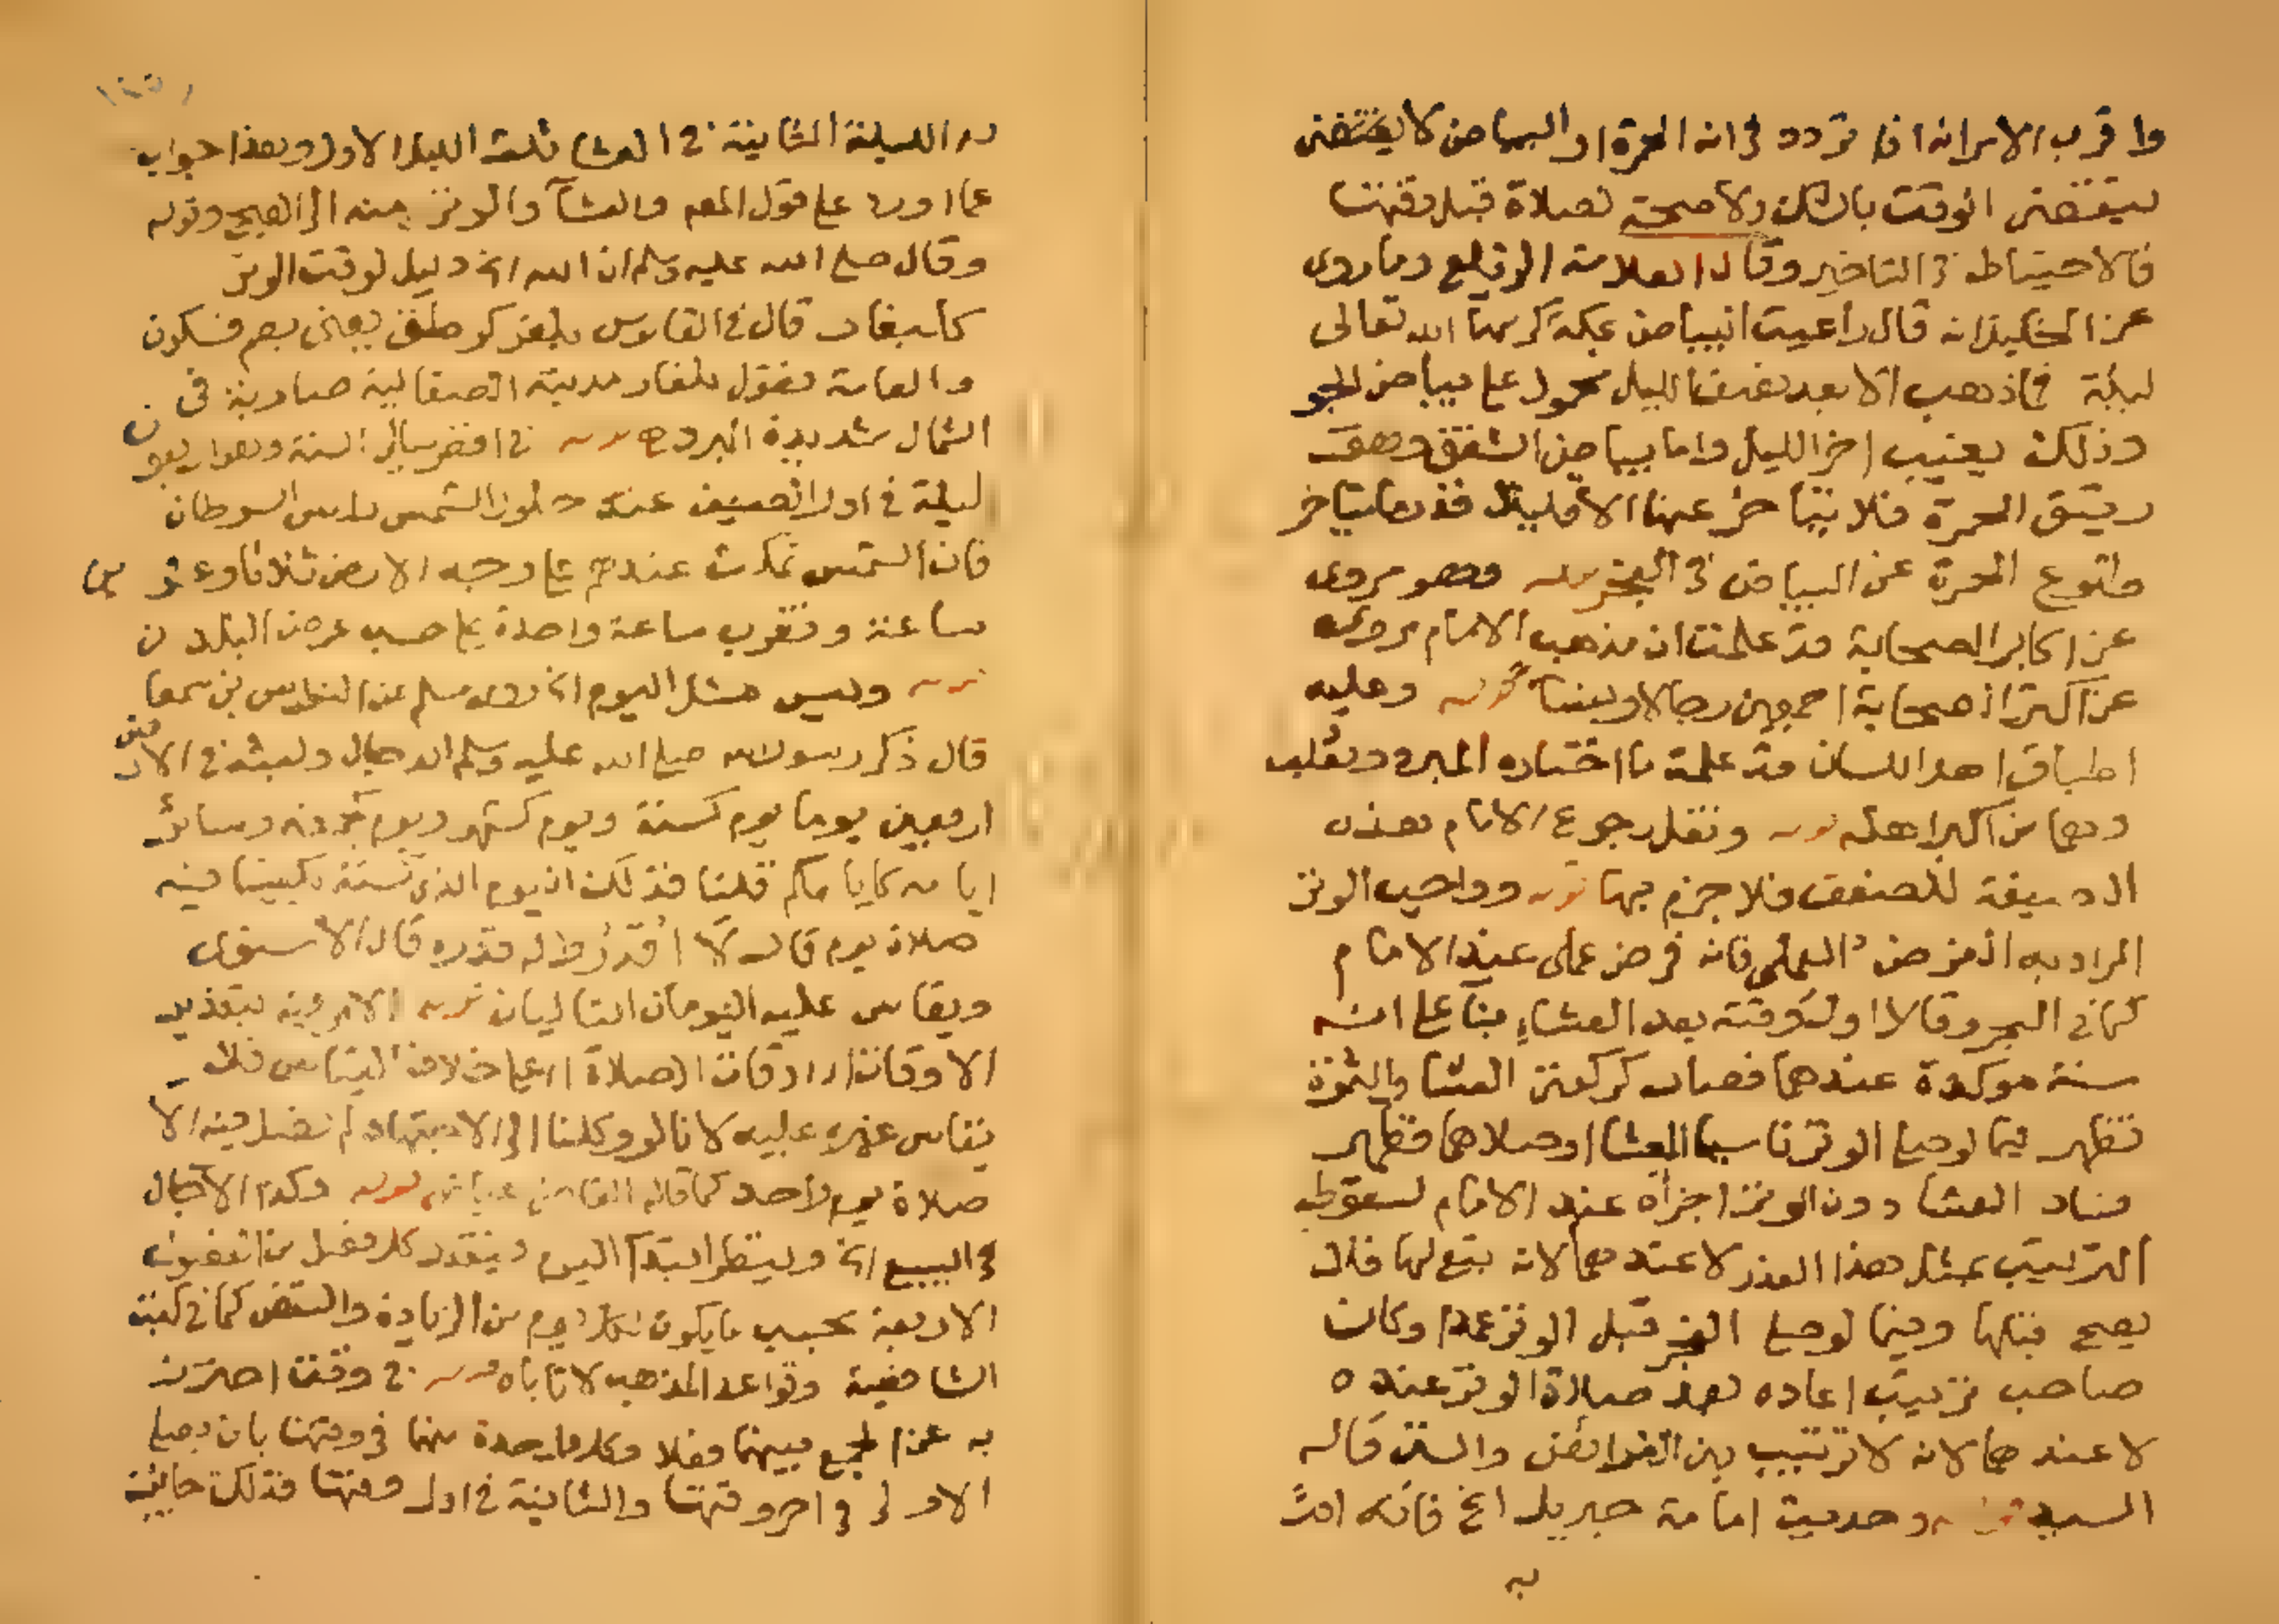 واقرب الامر انه اذا تردد في انه الحمرة او البياض لا يقتضى
يقتضى الوقت بالشك ولا صحة لصلاة قبل وقتها
فالاحتياط في التاخير وقال العلامة الزيلعى وما روى
عن الخليل انه قال راعيت البياض بمكة كرمها الله تعالى
ليلة فما ذهب الا بعد نصف الليل محمول على بياض الجو
وذلك يغيب اخر الليل واما بياض الشفق وهو
رقيق الحمرة فلا يتاخر عنها الا قليلا قدر ما يتاخر
طلوع الحمرة عن البياض في الفجر قوله وهو مروى
عن اكابر الصحابة قد علمت ان مذهب الامام مروى
عن اكثر الصحابة اجمعين رجالا ونساء قوله وعليه
اطباق اهل اللسان قد علمت ما اختاره المبرد وثعلب
وهما من اكبر اهله قوله ونقل رجوع الامام بهذه
الصيغة للضعف فلا جزم بها قوله وواجب الوتر
المراد به الفرض العملى فانه فرض عملى عند الامام
كما في البحر وقالا اول وقته بعد العشاء بناء على انه
سنة موكدة عندهما فصار كركعتى العشا والثمرة
تظهر فيما لو صلى الوتر ناسيا العشا او صلاهما فظهر
فساد العشا دون الوتر اجزأه عند الامام لسقوط
الترتيب بمثل هذا العذر لا عندهما لانه تبع لها فلا
يصح قبلها وفيما لو صلى الفجر قبل الوتر عمدا وكان
صاحب ترتيب اعاده بعد صلاة الوتر عنده
لا عندهما لانه لا ترتيب بين الفرائض والسنن قاله
السيد قوله وحديث امامة جبريل الخ فانه ام
به
له الليلة الثانية في العشا ثلث الليل الاول وهذا جواب
عما اورد على قول المص والعشآ والوتر منه الى الصبح وقوله
وقال صلى الله عليه وسلم ان الله الخ دليل لوقت الوتر
كبلغار قال في القاموس بلغر كقرطق يعنى بضم فسكون
والعامة تقول بلغار مدينة الصقالبة ضاربة في
الشمال شديدة البرد قوله في اقصر ليالى السنة وهو اربعون
ليلة في اول الصيف عند حلول الشمس راس السرطان
فان الشمس تمكث عندهم على وجه الارض ثلاثا وعشرين
ساعة وتغرب ساعة واحدة على حسب عرض البلد
قوله وليس مثل اليوم الخ روى مسلم عن النواس بن سمعان
قال ذكر رسول الله صلى الله عليه وسلم الدجال ولبثه في الارض
اربعين يوما يوم كسنة ويوم كشهر ويوم كجمعة وسائر
ايامه كايامكم قلنا فذلك اليوم الذى كسنة يكفينا فيه
صلاة يوم قال لا اقدروا له قدره قال الاسنوى
ويقاس عليه اليومان التاليان قوله الامر فيه بتقدير
الاوقات اوقات الصلاة على خلاف القياس فلا
يقاس غيره عليه لانا لو وكلنا الى الاجتهاد لم نصل فيه الا
صلاة يوم واحد كما قاله القاضى عياض قوله وكذا الآجال
في البيع الخ وينظر ابتداء اليوم فيقدر كل فصل من الفصول
الاربعة بحسب ما يكون لكل يوم من الزيادة والنقص كما في كتب
الشافعية وقواعد المذهب لا تاباه قوله في وقت احترز
به عن الجمع بينهما فعلا وكل واحدة منهما في وقتها بان يصلى
الاولى في اخر وقتها والثانية في اول وقتها فذلك جائز